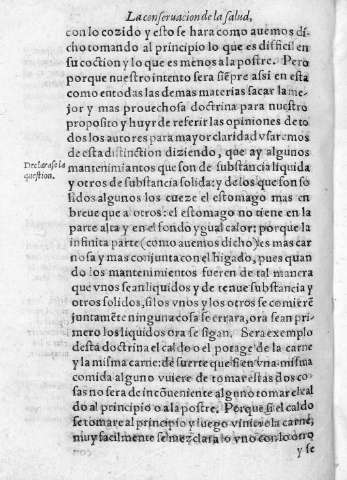 La conseruacion de la salud,
con lo cozido y esto se hara como auemos di-
cho tomando al principio lo que es dificil en
su coction y lo que es menos a la postre. Pero
porque nuestro intento sera siẽpre assi en esta
como en todas las demas materias sacar la me-
jor y mas prouechosa doctrina para nuestro
proposito y huyr de referir las opiniones de to
dos los autores para mayor claridad vsaremos
de esta distinction diziendo, que ay algunos
mantenimiantos que son de substãcia liquida
y otros de substãcia solida: y de los que son so
lidos algunos los cueze el estomago mas en
breue que a otros: el estomago no tiene en la
parte alta y en el fondo ygual calor; porque la
infinita parte (como auemos dicho) es mas car
nosa y mas conjunta con el higado, pues quan
do los mantenimientos fueren de tal manera
que vnos sean liquidos y de tenue substancia y
otros solidos, si los vnos y los otros se comierẽ
juntamẽte ninguna cosa se errara, ora sean pri-
mero los liquidos ora se sigan. Sera exemplo
desta doctrina el caldo o el potage de la carne
y la misma carne: de suerte que si en vna misma
comida alguno vuiere de tomar estas dos co-
sas no sera de incõueniente alguno tomar el cal
do al principio o a la postre. Porque si el caldo
se tomare al principio y luego viniere la carne,
muy facilmente se mezclara lo vno con lo otro
y se
Declarase la
question.